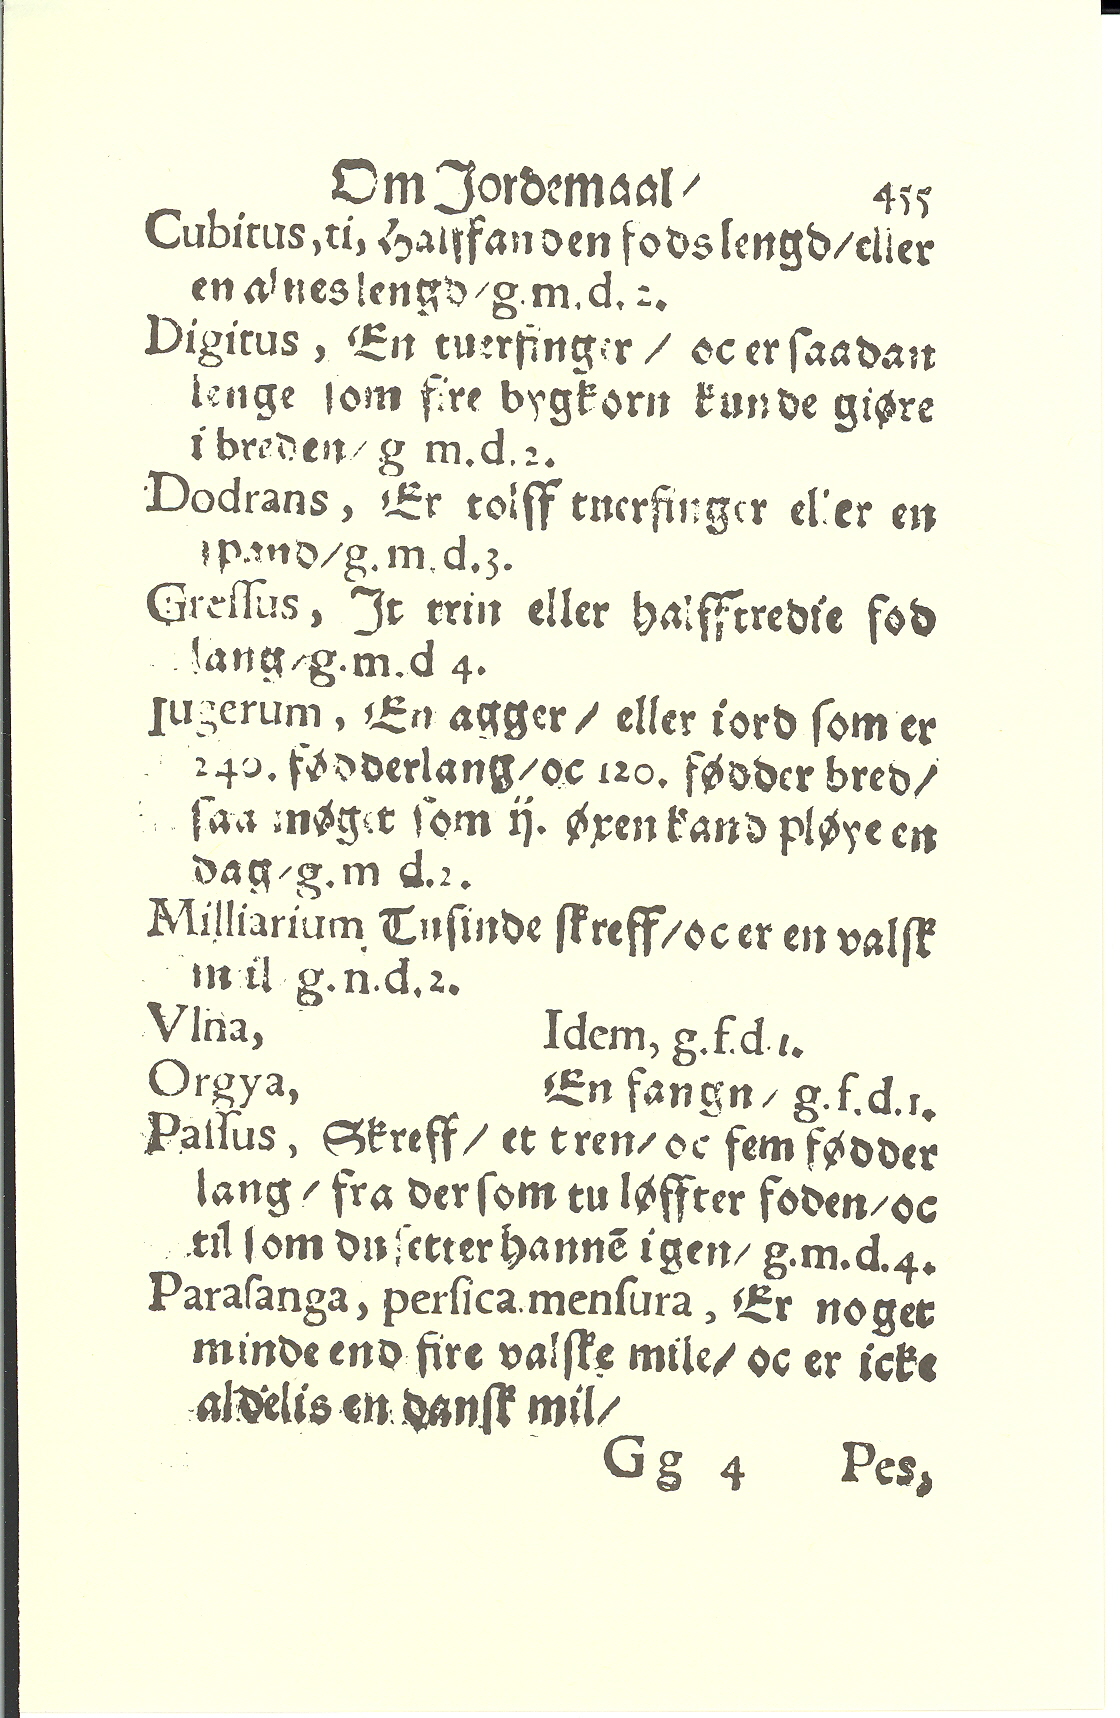 Om Jordemaal/ 455
Cubitus,ti, Halffanden fods lengd/eller
en alnes lengd/g.m.d.2.
Digitus, En tuerfinger / oc er saadan
lenge som fire bygkorn kunde giøre
i breden/ g m.d.2.
Dodrans, Er tolff tuerfinger eller en
spand/g.m.d.3.
Gressus, It trin eller halfftredie fod
lang/g.m.d 4.
Iugerum, En agger/ eller iord som er
240. fødder lang/oc 120. fødder bred/
saa møget som ij. øxen kand pløye en
dag/g.m d.2.
Milliarium, Tusinde skreff/oc er en valsk
mil g.n.d.2.
Vlna, Idem, g.f.d.1.
Orgya, En fangn/ g.f.d.1.
Passus, Skreff/ et tren/ oc fem fødder
lang/ fra der som tu løffter foden/oc
til som du setter hannē igen/ g.m.d.4.
Parasanga, persica mensura, Er noget
minde end fire valske mile/ oc er icke
aldelis en dansk mil/
Gg 4 Pes,